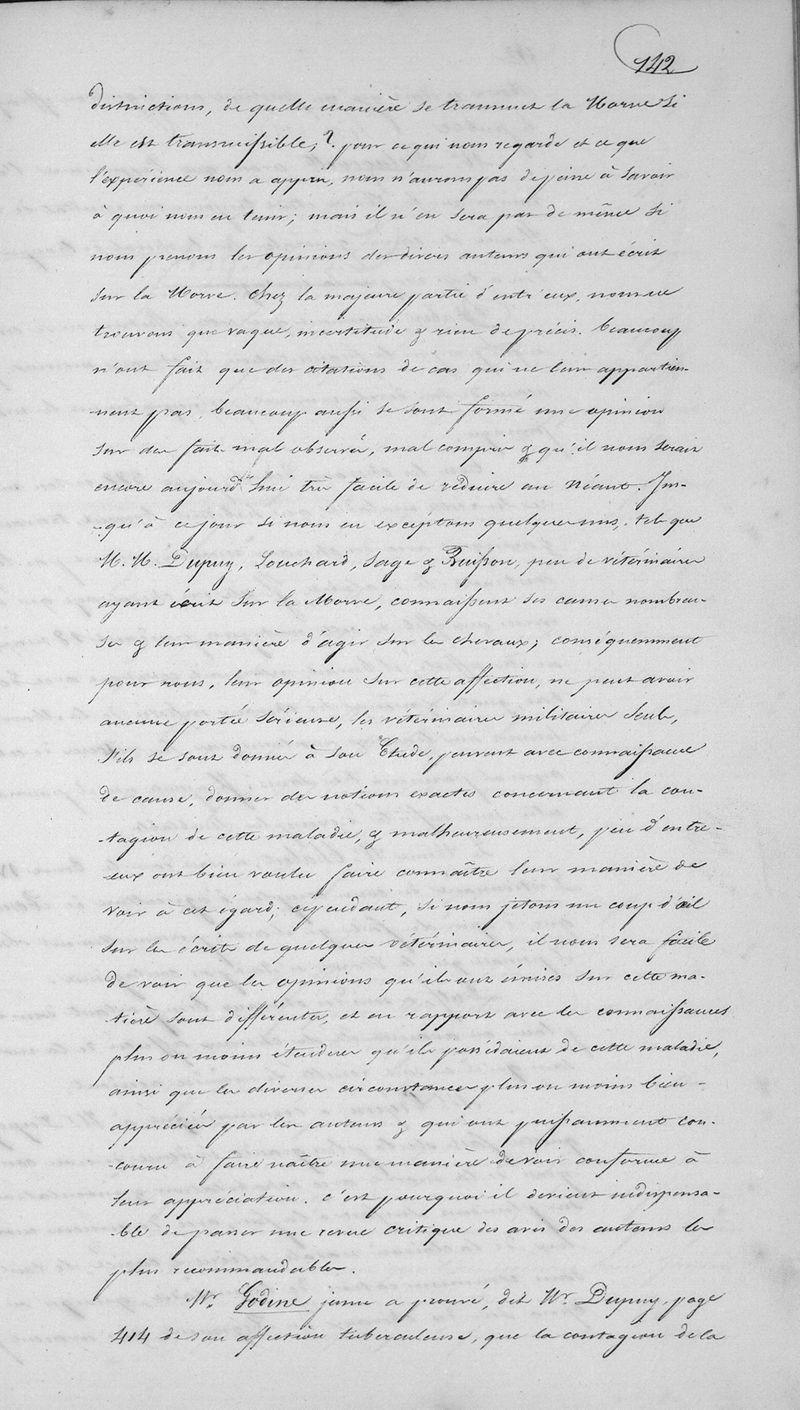 142
distinctions, de quelle manière se transmet la Morve si
elle est transmissible,? pour ce qui nous regarde et ce que
l'expérience nous a appris, nous n'aurons pas de peine à savoir
à quoi nous en tenir; mais il n'en sera pas de même si
nous prenons les opinions des divers auteurs qui ont écrit
sur la Morve. Chez la majeure partie d'entr'eux, nous ne
trouvons que vague, incertitude & rien de précis. beaucoup
n'ont fait que des citations de cas qui ne leur appartien-
nent pas, beaucoup aussi se sont formé une opinion
sur des faits mal observés, mal compris & qu'il nous serait
encore aujourd'hui très facile de réduire au Néant. Jus-
-qu'à ce jour si nous en exceptons quelques uns, tels que
M. M. Dupuy, Louchard, Sage & Buisson, peu de vétérinaires
ayant écrit sur la Morve, connaissent ses causes nombreu-
ses & leur manière d'agir sur les chevaux; conséquemment
pour nous, leur opinion sur cette affection, ne peut avoir
aucune portée sérieuse, les vétérinaires militaires seuls,
s'ils se sont donnés à son Etude, peuvent avec connaissance
de cause, donner des notions exactes concernant la con-
-tagion de cette maladie, & malheureusement, peu d'entre-
-eux ont bien voulu faire connaître leur manière de
voir à cet égard; cependant, si nous jetons un coup d'œil
sur les écrits de quelques vétérinaires, il nous sera facile
de voir que les opinions qu'ils ont émises sur cette ma-
-tière sont différentes, et en rapport avec les connaissances
plus ou moins étendues qu'ils possédaient de cette maladie,
ainsi que les diverses circonstances plus ou moins bien-
appréciées par les auteurs & qui ont puissamment con-
-couru à faire naître une manière de voir conforme à
leur appréciation. c'est pourquoi il devient indispensa-
-ble de passer une revue critique des avis des auteurs les
plus recommandables.
Mr. Godine jeune a prouvé, dit Mr. Dupuy, page
414 de son affection tuberculeuse, que la contagion de la